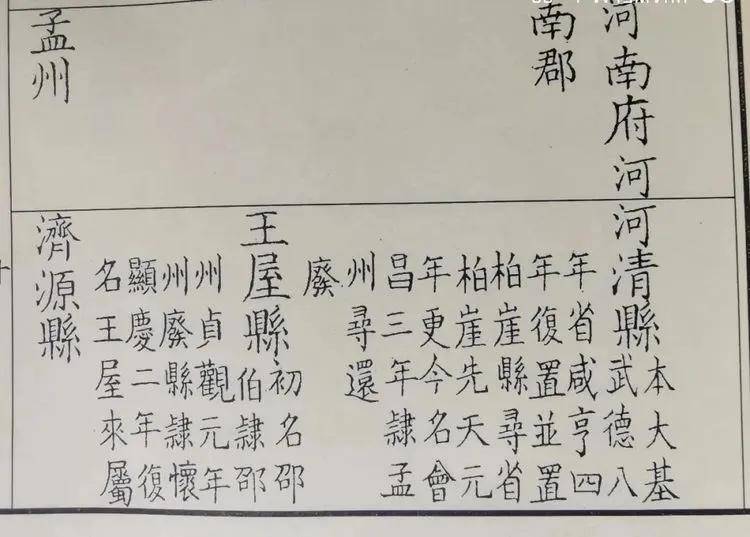 河南府河
南郡
孟州
河清縣
本大基
武德八
年省咸亨四
年復置並置
柏崖縣尋省
柏崖先天元
年更今名會
昌三年隸孟
州尋還
廢
王屋縣
初名邵
伯隸邵
州貞觀元年
州廢縣隸懷
顯慶二年復
名王屋來屬
濟源縣